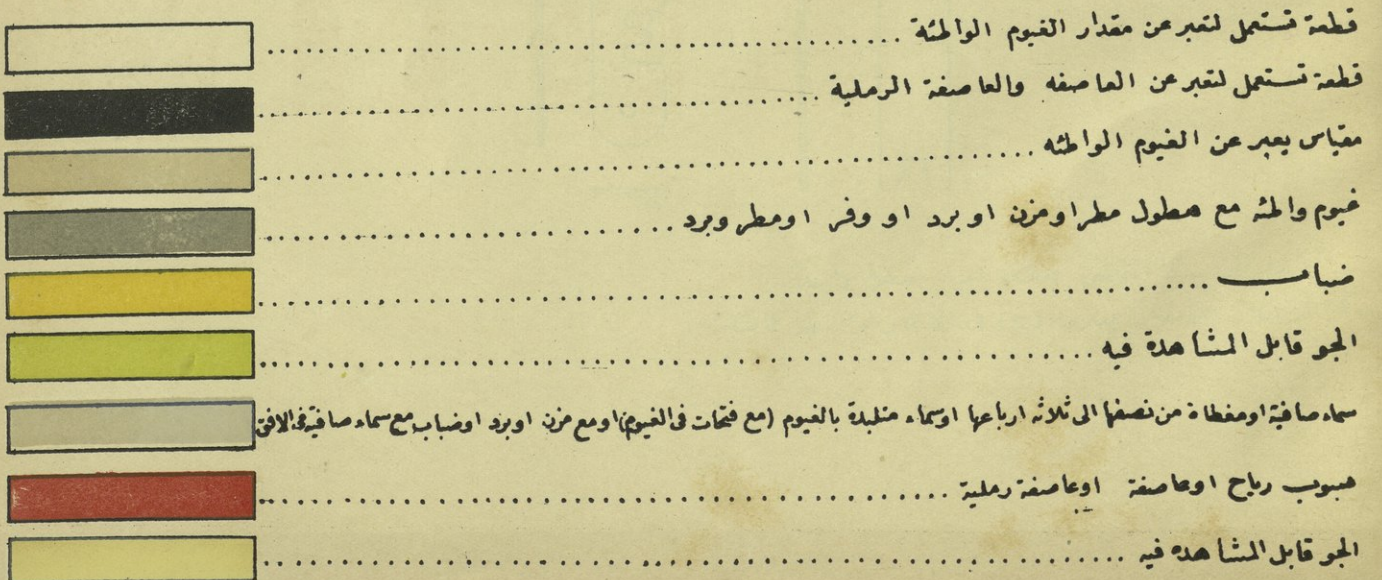 قطعة تستعمل لتعبر عن مقدار الغيوم الواطئة
قطعة تستعمل لتعبر عن العاصفه والعاصفة الرملية
مقياس يعبر عن الغيوم الواطئه
غيوم واطئه مع هطول مطر او مزن او برد او وفر او مطر وبرد
ضباب
الجو قابل المشاهدة فيه
سماء صافية او مغطاة من نصفها الى ثلاثه ارباعها او سماء متلبدة بالغيوم (مع فتحات فى الغيوم) او مع مزن او برد او ضباب مع سماء صافية فى الافق
هبوب رياح او عاصفة او عاصفة رملية
الجو قابل المشاهده فيه